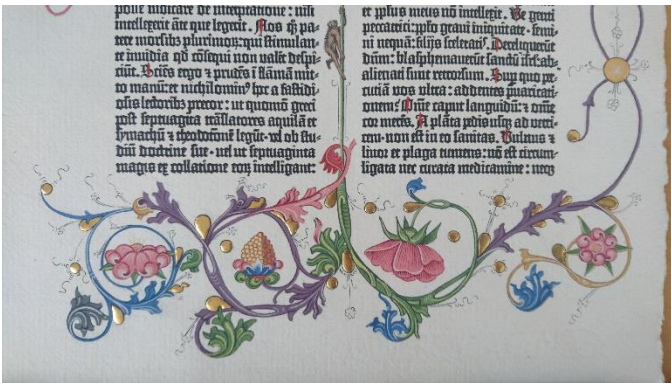 pone iudicare de interpretatione : nisi
intellexerit āte que legerit. Nos qꝫ pa⸗
tere morsibꝫ plurimoꝝ: qui stimulan⸗
te invidia qd̄ cōsequi non valēt despi⸗
ciūt. Sciēs ergo ⁊ prudēs ī flāmā mit⸗
to manū: et nichilominꝰ hoc a fastidi⸗
osis lectoribꝫ precor: ut quomō greci
post septuaginta trāslatores aquilam et
symachū ⁊ theodotionē legūt: vel ob stu⸗
diū doctrine sue . vel ut septuaginta
magis ex collatione eoꝝ intelligant:
et pplūs meus nō intellexit. Ve genti
peccatrici: pplo gravi iniquitate: semi⸗
ni nequā: filijs sceleratꝭ. Dereliquerūt
dūm: blasphemaverūt sanctū isrl̄: ab⸗
alienati sunt retrorsum. Super quo per⸗
cutiā vos ultra: addentes p̄varicati⸗
onem: Omne caput languidū: ⁊ omne
cor merēs. A plāta pedis usqꝫ ad verti⸗
cem: non est in eo sanitas. Vulnus ⁊
livor et plaga tumens: nō est circum⸗
ligata nec curata medicamine : neqꝫ